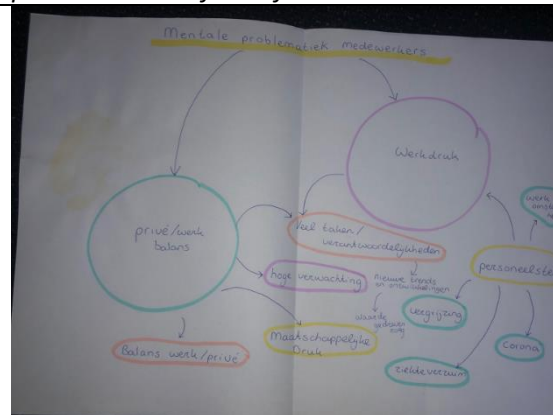 Mentale problematiek medewerkers
Werkdruk
privé/werk
balans
veel taken/
verantwoordelijkheden
hoge verwachting
nieuwe trends
en ontwikkelingen
waarde
Maatschappelijke
Druk
Balans werk/privé
werk
personeelste
vergrijzing
Corona
ziekteverzuim